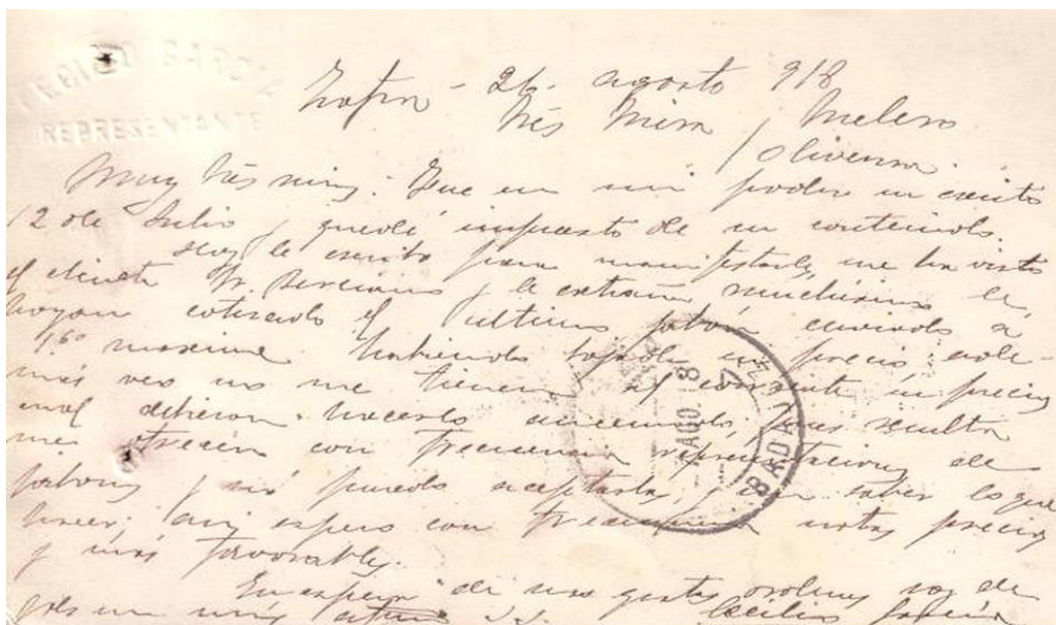 CECILIO GARCIA
REPRESENTANTE
Zafra - 26 - agosto 918
Srés Mira y Melero
Olivenza.
Muy Srés mios: Fue en mi poder su escrito
12 de Julio y quedé impuesto de su contenido.
Hoy le escribo para manifestarle, me ha visto
el cliente Sr. y le extraña muchisimo le
hayan cotizado el ultimo jabón enviado a
maxime habiendo tapado un precio: ade-
más veo no me tienen al corriente en precios
cual debieran hacerlo pues resulta
me ofrecen con frecuencia representaciones de
jabones y no puedo aceptarlas, sin saber lo que
hacer; asi espero con frecuencia notas precios
y más favorables.
En espera de sus gratas ordenes soy de
Vds su más atento S.S. Cecilio García
AGO. 18
BADAJOZ